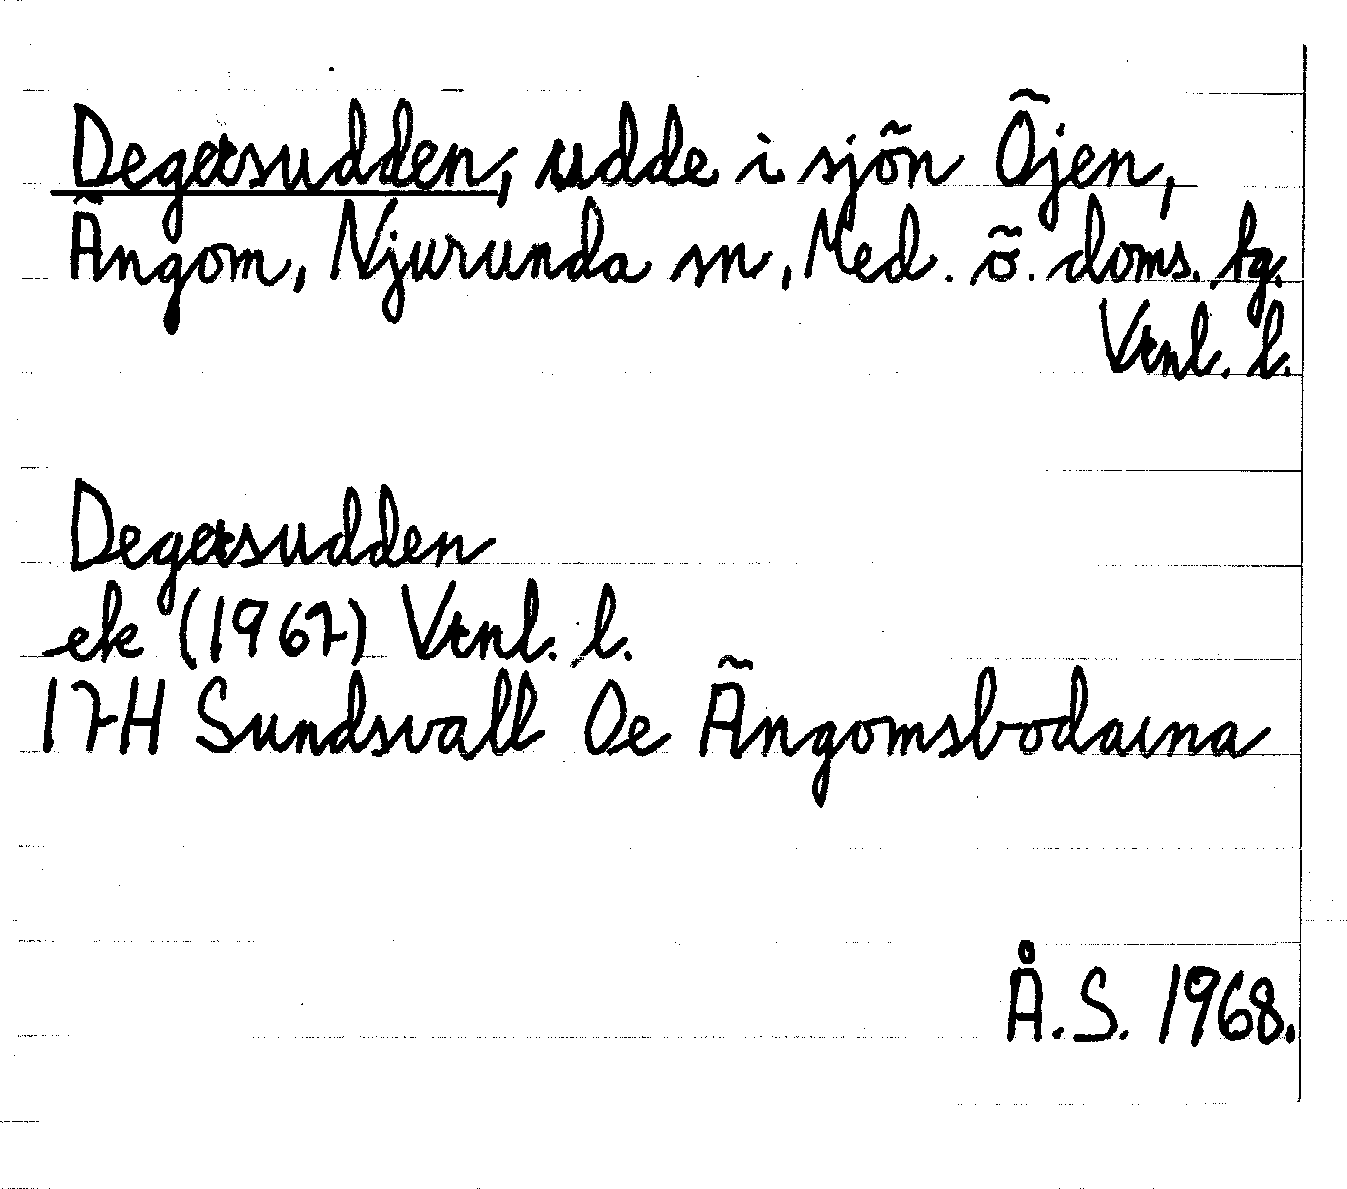 Degersudden, udde i sjön Öjen,
Ängom, Njurunda sn, Med. ö. doms. tg.
Vtnl. l.
Degersudden
ek (1967) Vtnl. l.
17H Sundsvall Oe Ängomsbodarna
Å.S. 1968.